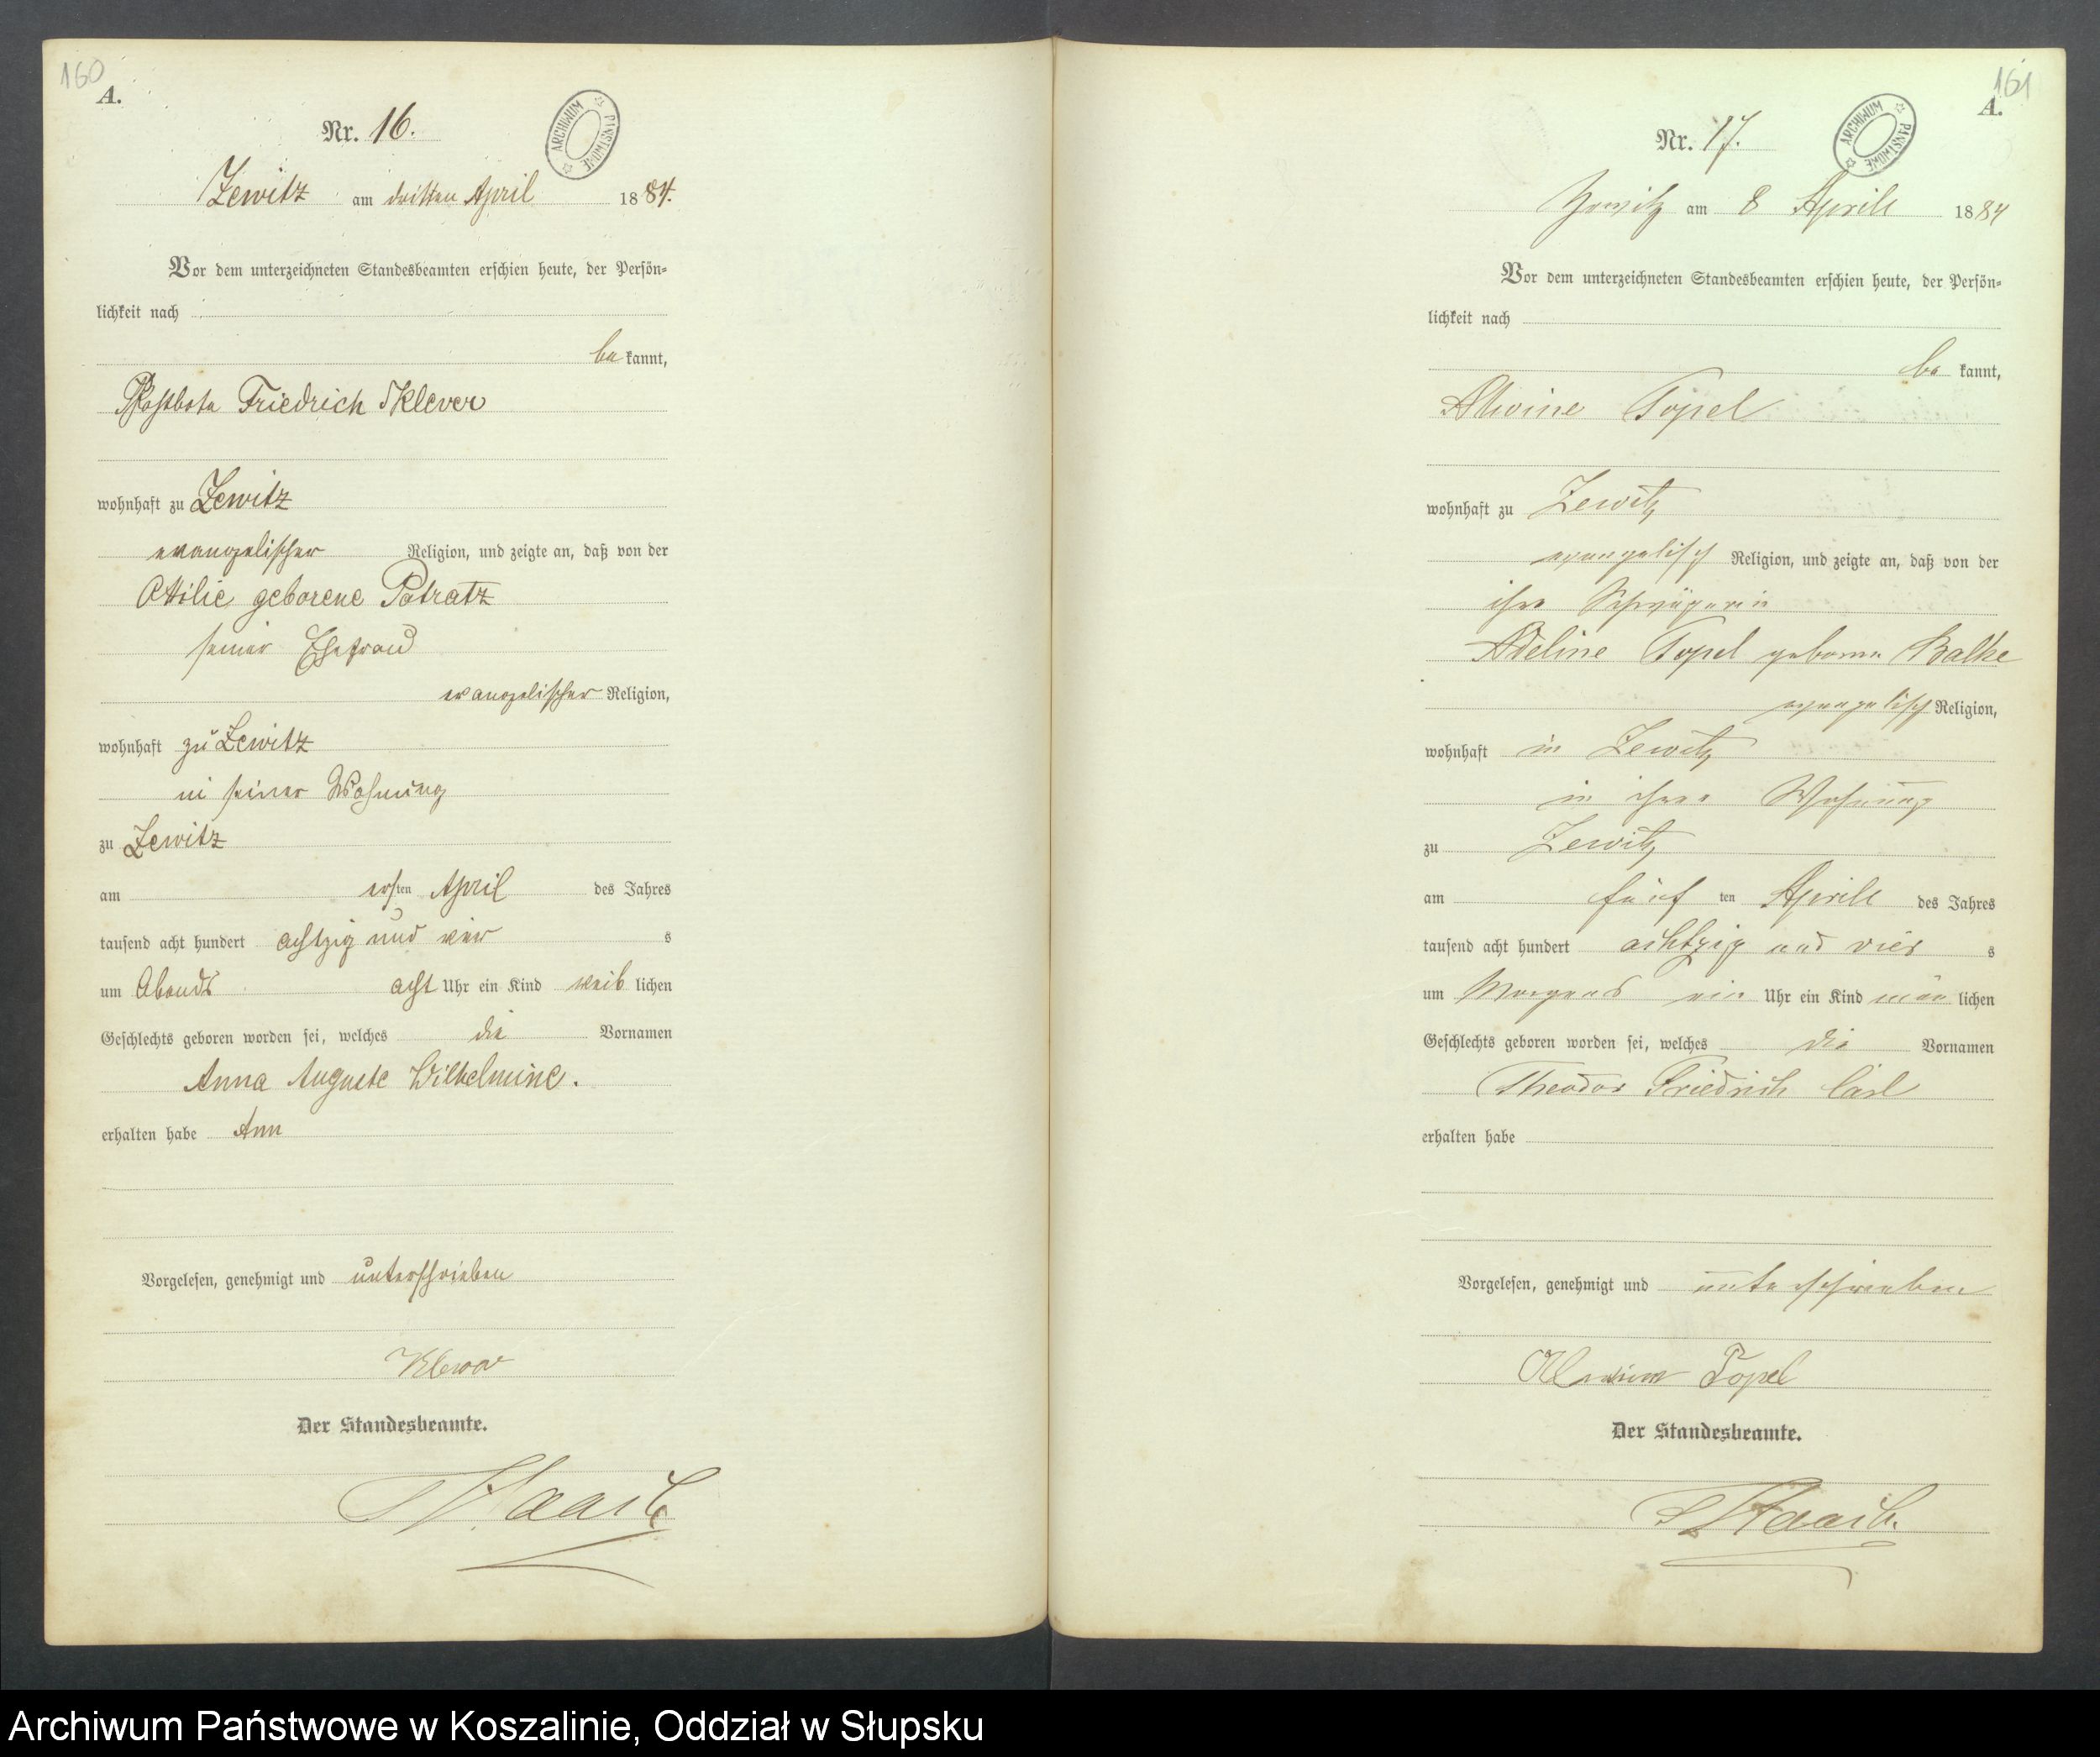 160
A.
Nr. 16.
ARCHIWUM PAŃSTWOWE
Zewitz am dritten April 1884.
Vor dem unterzeichneten Standesbeamten erschien heute, der Persön-
lichkeit nach
bekannt,
Postbote Friedrich Klever
wohnhaft zu Zewitz
evangelischer Religion, und zeigte an, daß von der
Ottilie geborene Patratz
seiner Ehefrau
evangelischer Religion,
wohnhaft zu Zewitz
in seiner Wohnung
zu Zewitz
am ersten April des Jahres
tausend acht hundert achtzig und vier s
um Abends acht Uhr ein Kind weiblichen
Geschlechts geboren worden sei, welches die Vornamen
Anna Auguste Wilhelmine.
erhalten habe Ann
Vorgelesen, genehmigt und unterschrieben
Klever
Der Standesbeamte.
161
A.
Nr. 17.
ARCHIWUM PAŃSTWOWE
Zewitz am 8 Aprill 1884
Vor dem unterzeichneten Standesbeamten erschien heute, der Persön-
lichkeit nach
bekannt,
Alwine Topel
wohnhaft zu Zewitz
evangelisch Religion, und zeigte an, daß von der
ihre Schwägerin
Adeline Topel geborne Balke
evangelisch Religion,
wohnhaft in Zewitz
in ihrer Wohnung
zu Zewitz
am fünften Aprill des Jahres
tausend acht hundert achtzig und vier s
um Morgens ein Uhr ein Kind mänlichen
Geschlechts geboren worden sei, welches die Vornamen
Theodor Friedrich Carl
erhalten habe
Vorgelesen, genehmigt und unterschrieben
Alwine Topel
Der Standesbeamte.
Archiwum Państwowe w Koszalinie, Oddział w Słupsku